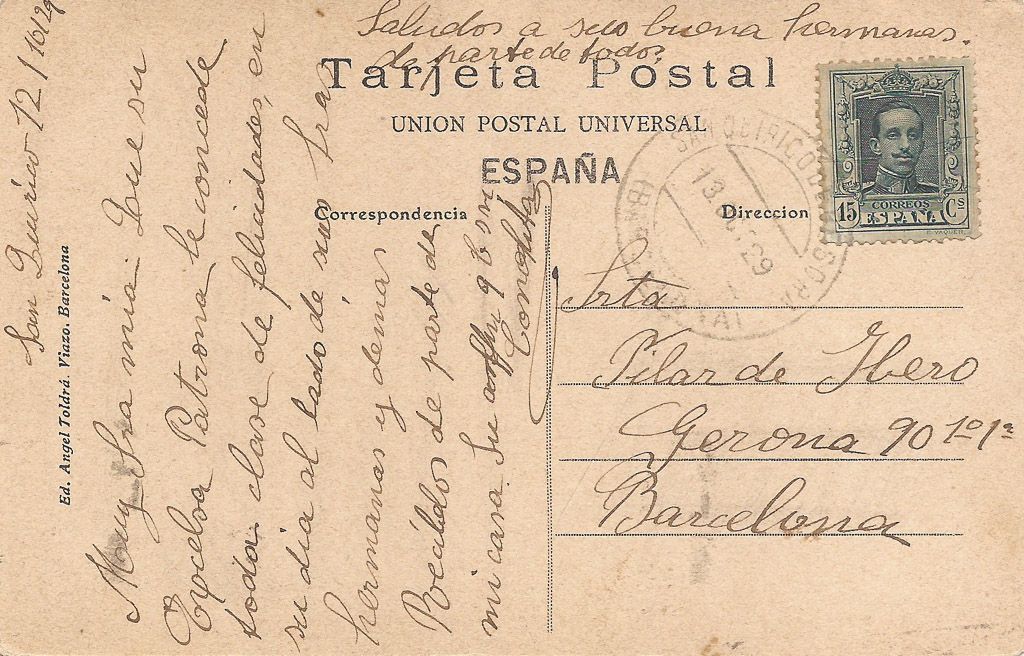 Saludos a sus buena hermanas.
de parte de todos.
Tarjeta Postal
UNION POSTAL UNIVERSAL
ESPAÑA
Correspondencia
Direccion
CORREOS
15 ESPAÑA Cs
E. VAQUER
13
29
San Quirico 12/10/29
Muy Sra mia: Que su
Excelsa Patrona le conceda
toda clase de felicidades, en
su dia al lado de sus Sras
hermanas y demás
Recibdos de parte de
mi casa. Su affm q b s m
Conchita
Srta
Pilar de Ibero
Gerona 90 1º 1ª
Barcelona
Ed. Angel Toldrá. Viazo. Barcelona